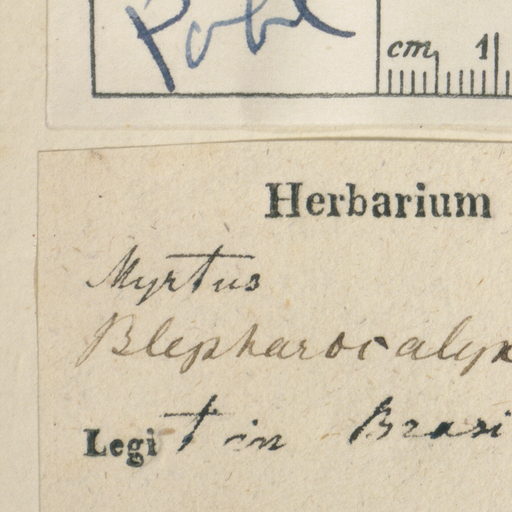 Pohl
cm 1
Herbarium
Myrtus
Blepharocalyx
Legit in Brasi